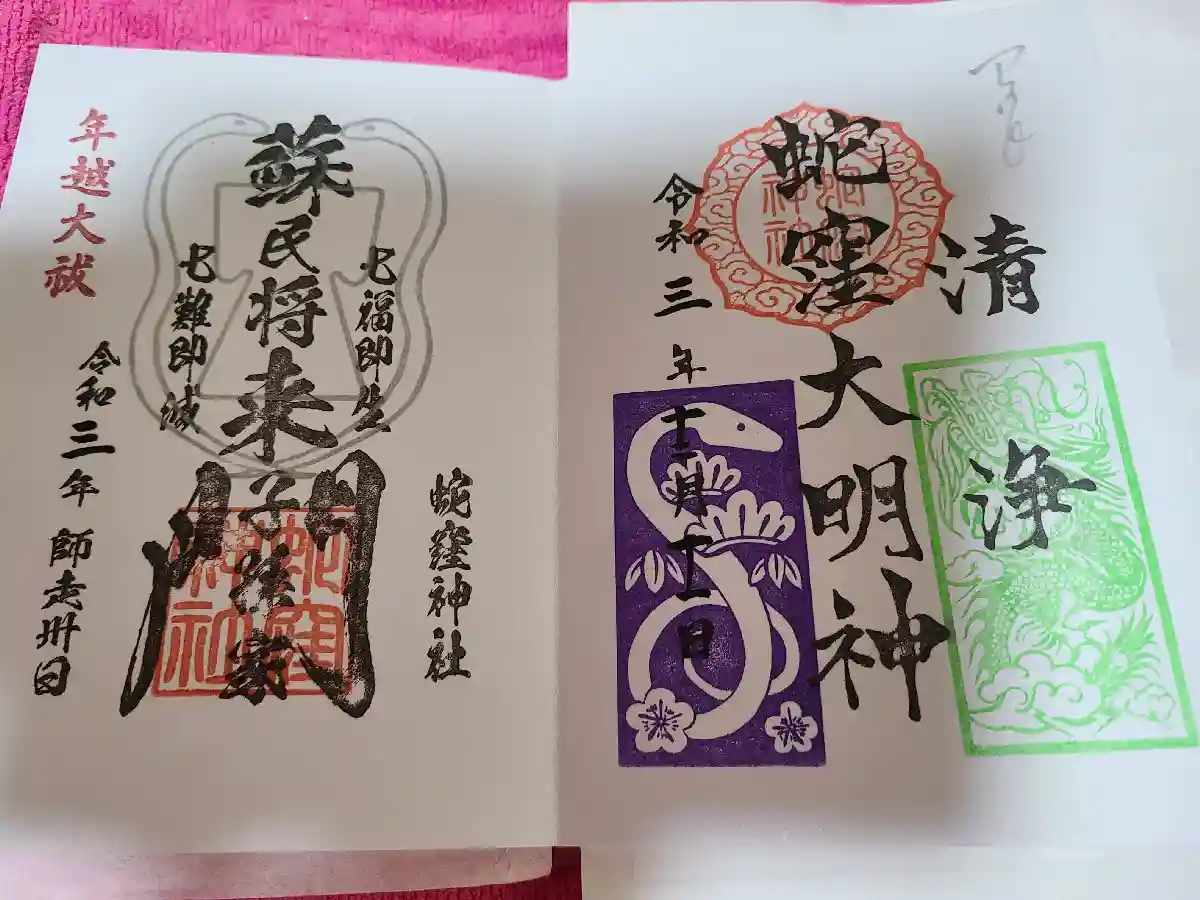 清浄
蛇窪大明神
蛇窪神社
令和三年十二月十一日
蛇窪神社
七福即生
蘇民将来子孫家門
蛇窪神社
七難即滅
令和三年師走卅日
年越大祓